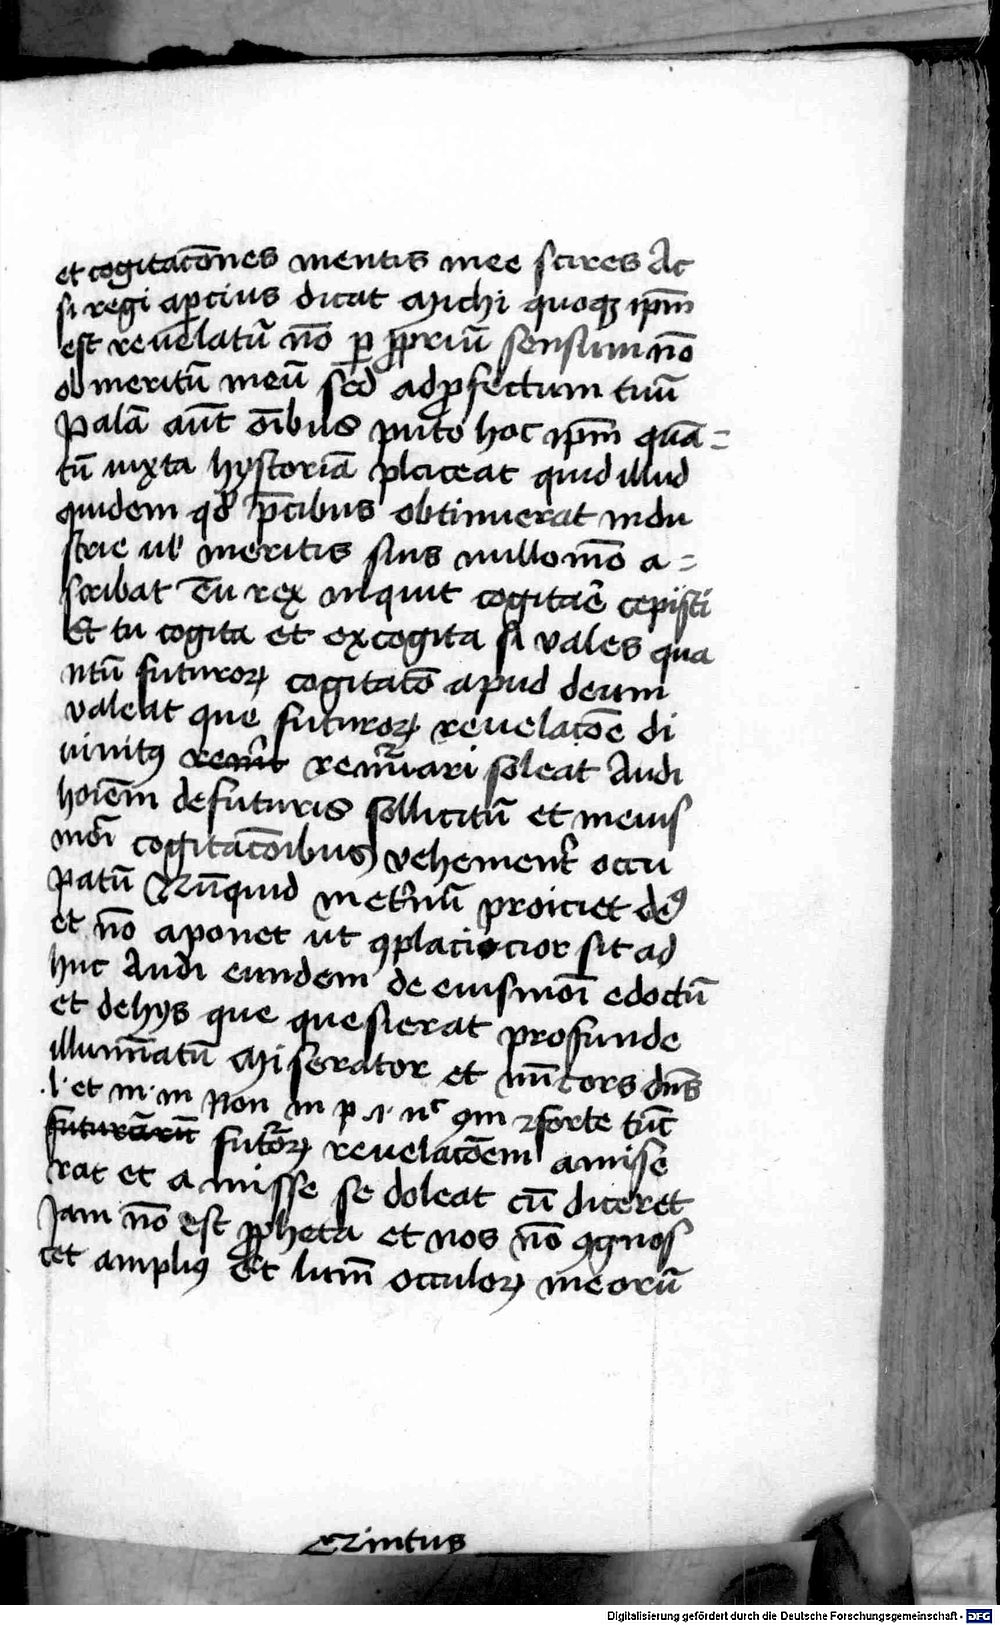 et cogitacōnes mentis mee scires Ac
si regi apcius dicat Michi quoqȝ ip̄m
est reuelatū nō ꝑ ꝓpriū sensum nō
ob meritū meū sed ad ꝓfectum tuū
Palā aūt oībus puto hoc ip̄m quā=
tū iuxta hystoriā placeat quid illud
quidem qd̓ p̄cibus obtinuerat indu
strie ul̓ meritis suis nullomō a=
scribat Tu rex inquit cogitar̄e cepisti
Et tu cogita et excogita si vales qua
ntū futuroꝝ cogitatō apud deum
valeat que futuroꝝ reuelacōe di
uinitꝰ remūari soleat Audi
hoīem de futuris sollicitū et meius
modi cogitacōnibus vehement̄ occu
patū Nūquid in et̓nū proiciet deꝰ
et nō aponet ut ꝯplacicior sit ad
huc Audi eundem de eiusmōi edoctū
et de hys que quesierat profunde
illumīatū Miserator et mīcors dn̄s
.l. et in. in Non in p .i. nͨ ꝯm forte tūc
futuroꝝ reuelacōem amise
rat et amisse se doleat cū diceret
Jam nō est ꝓpheta et nos nō ꝯgnos
cet ampliꝰ Et lum̄ occuloꝝ meorū